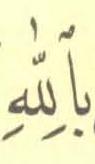 بِٱللَّٰهِ